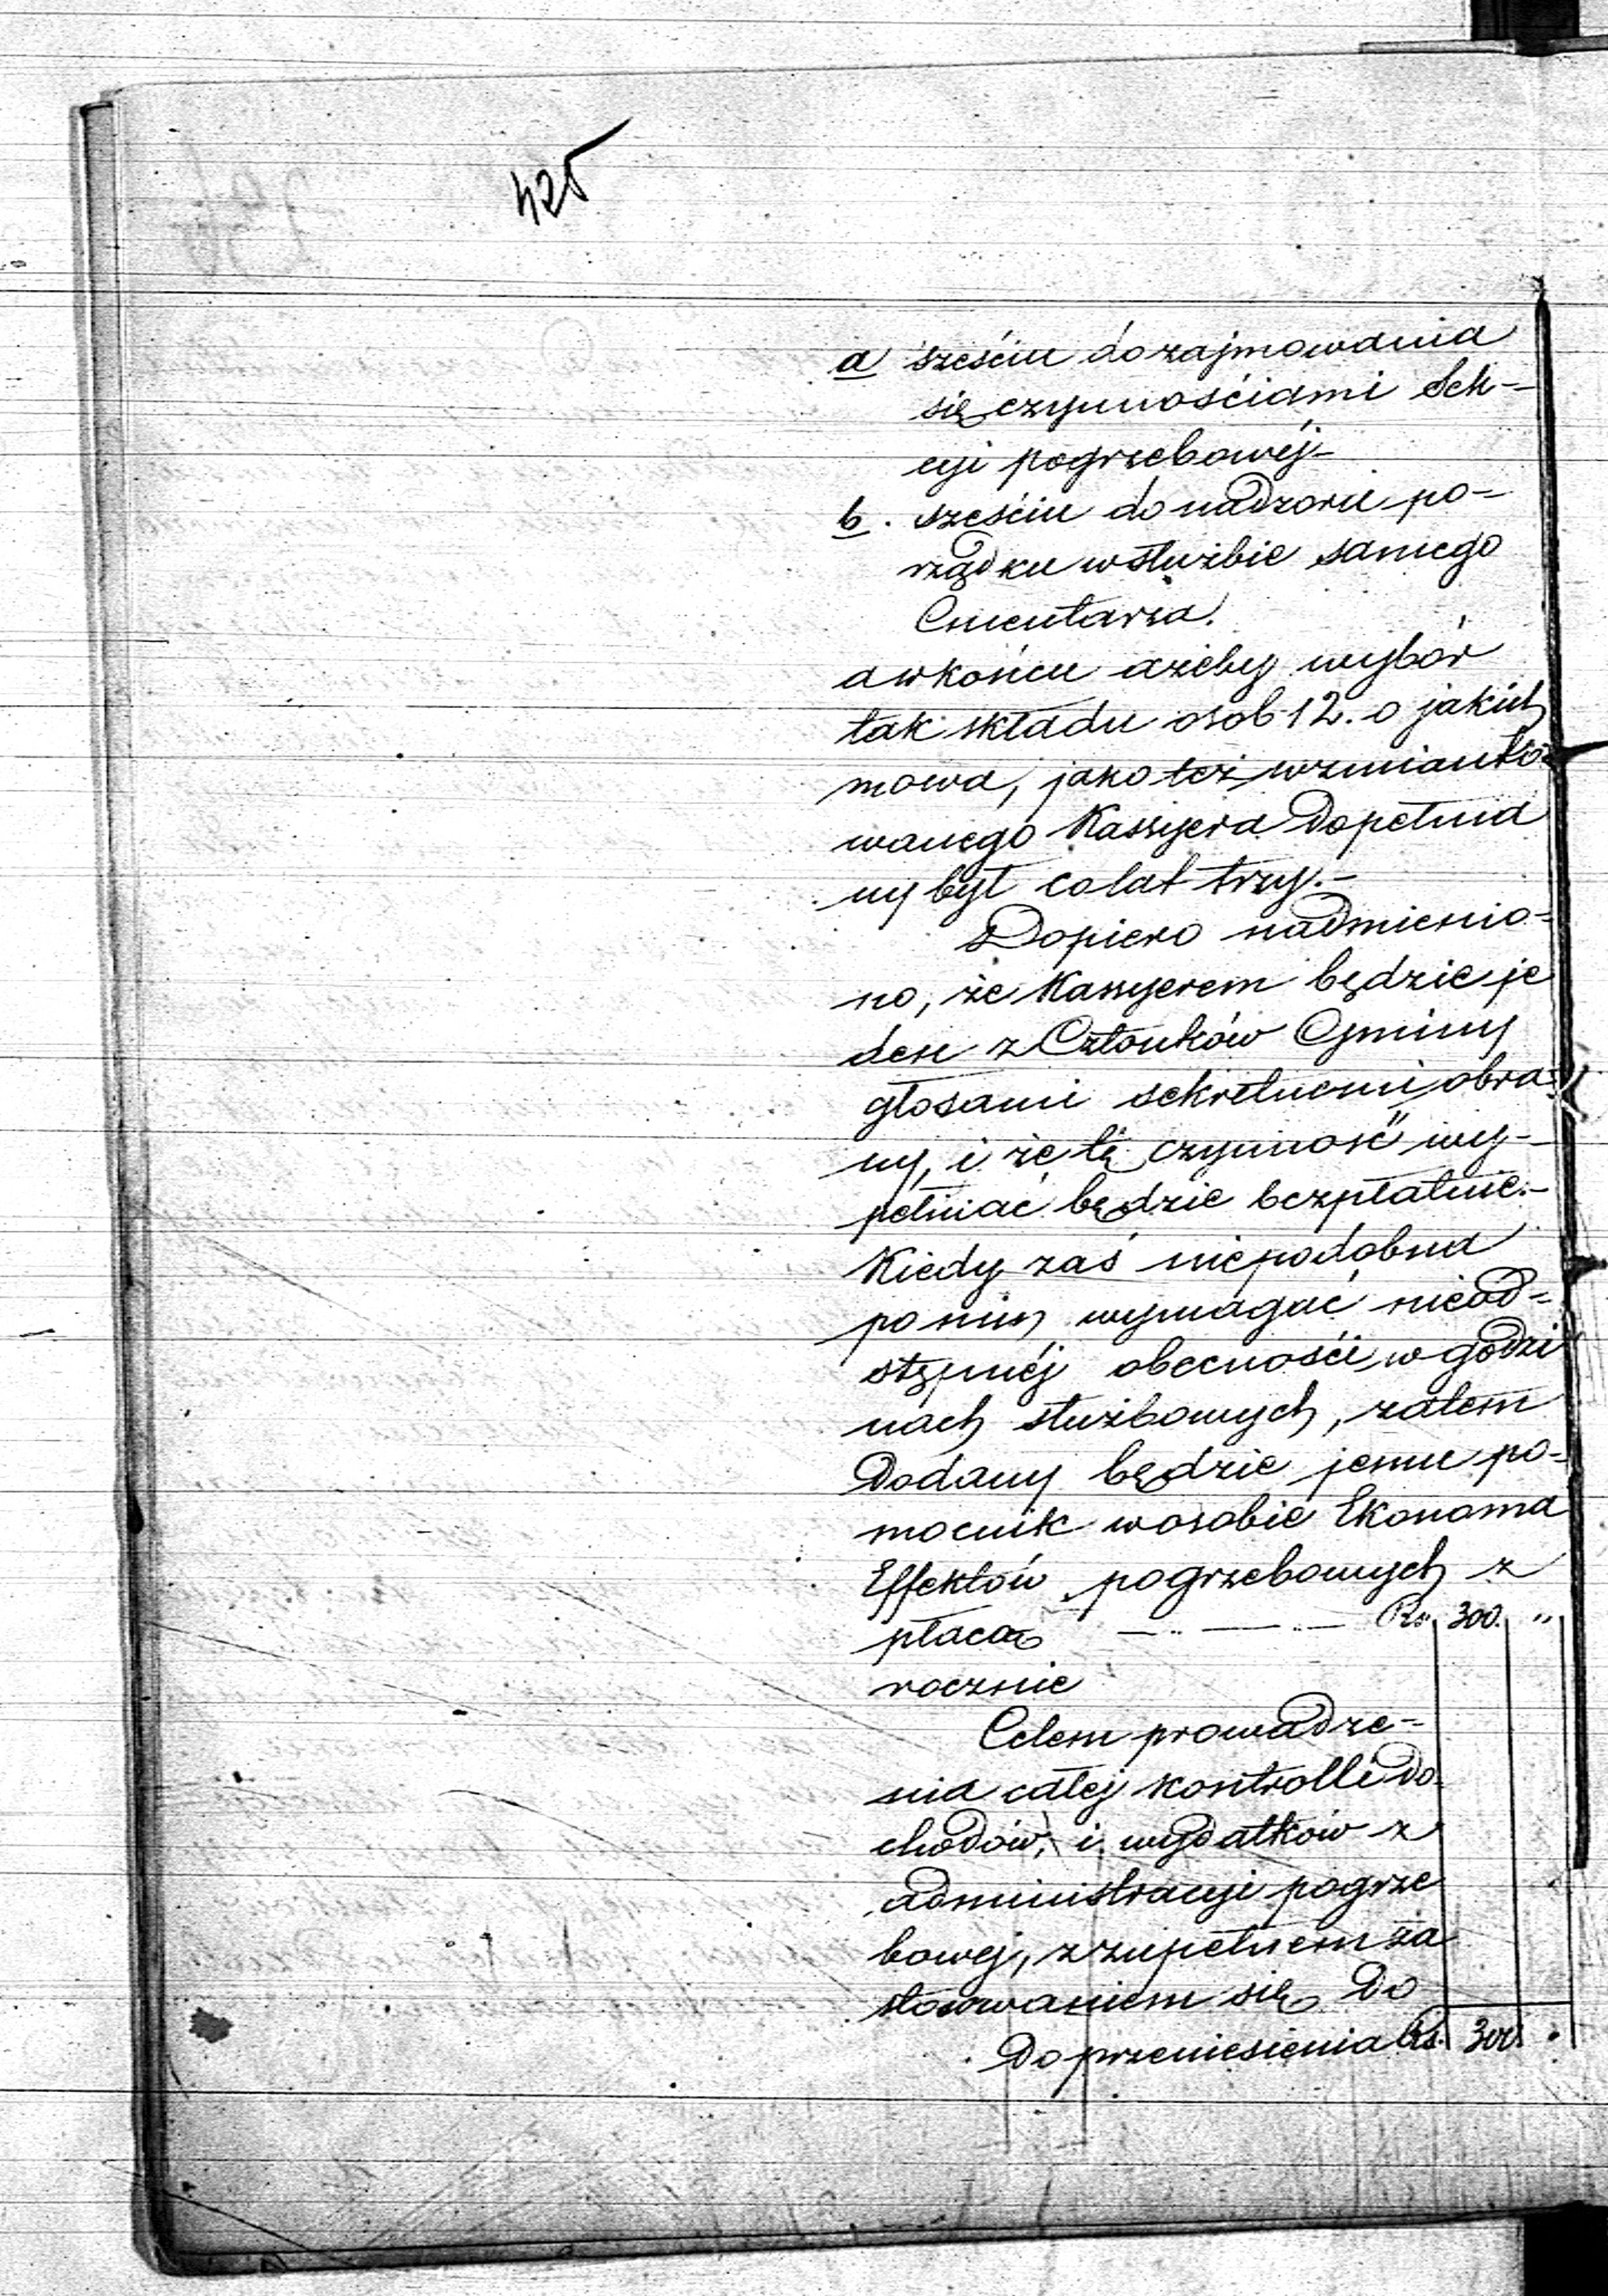 425
a sześciu do zajmowania
się czynnościami Sek-
cyi pogrzebowéj-
b. sześciu do nadzoru po-
rządku w służbie samego
Cmentarza.
a w końcu ażeby wybór
tak składu osob 12. o jakich
mowa, jako też wzmianko-
wanego Kassyera dopełnia
ny był co lat trzy.-
Dopiero nadmienio-
no, że Kassyerem będzie je
den z Członków Gminy
głosami sekretnemi obra-
ny, i że tę czynność wy-
pełniać będzie bezpłatnie.-
Kiedy zaś niepodobna
po nim wymagać nieod-
stępnéj obecności w godzi
nach służbowych, zatem
Dodany będzie jemu po-
mocnik w osobie Ekonoma
Effektów pogrzebowych z
płacą — .. — .. — Rs. 300. "
rocznie
Celem prowadze-
nia całej kontrolli do-
chodów, i wydatków z
administracyi pogrze
bowej, z zupełnem za
stosowaniem się do
Do przeniesienia Rs. 300.